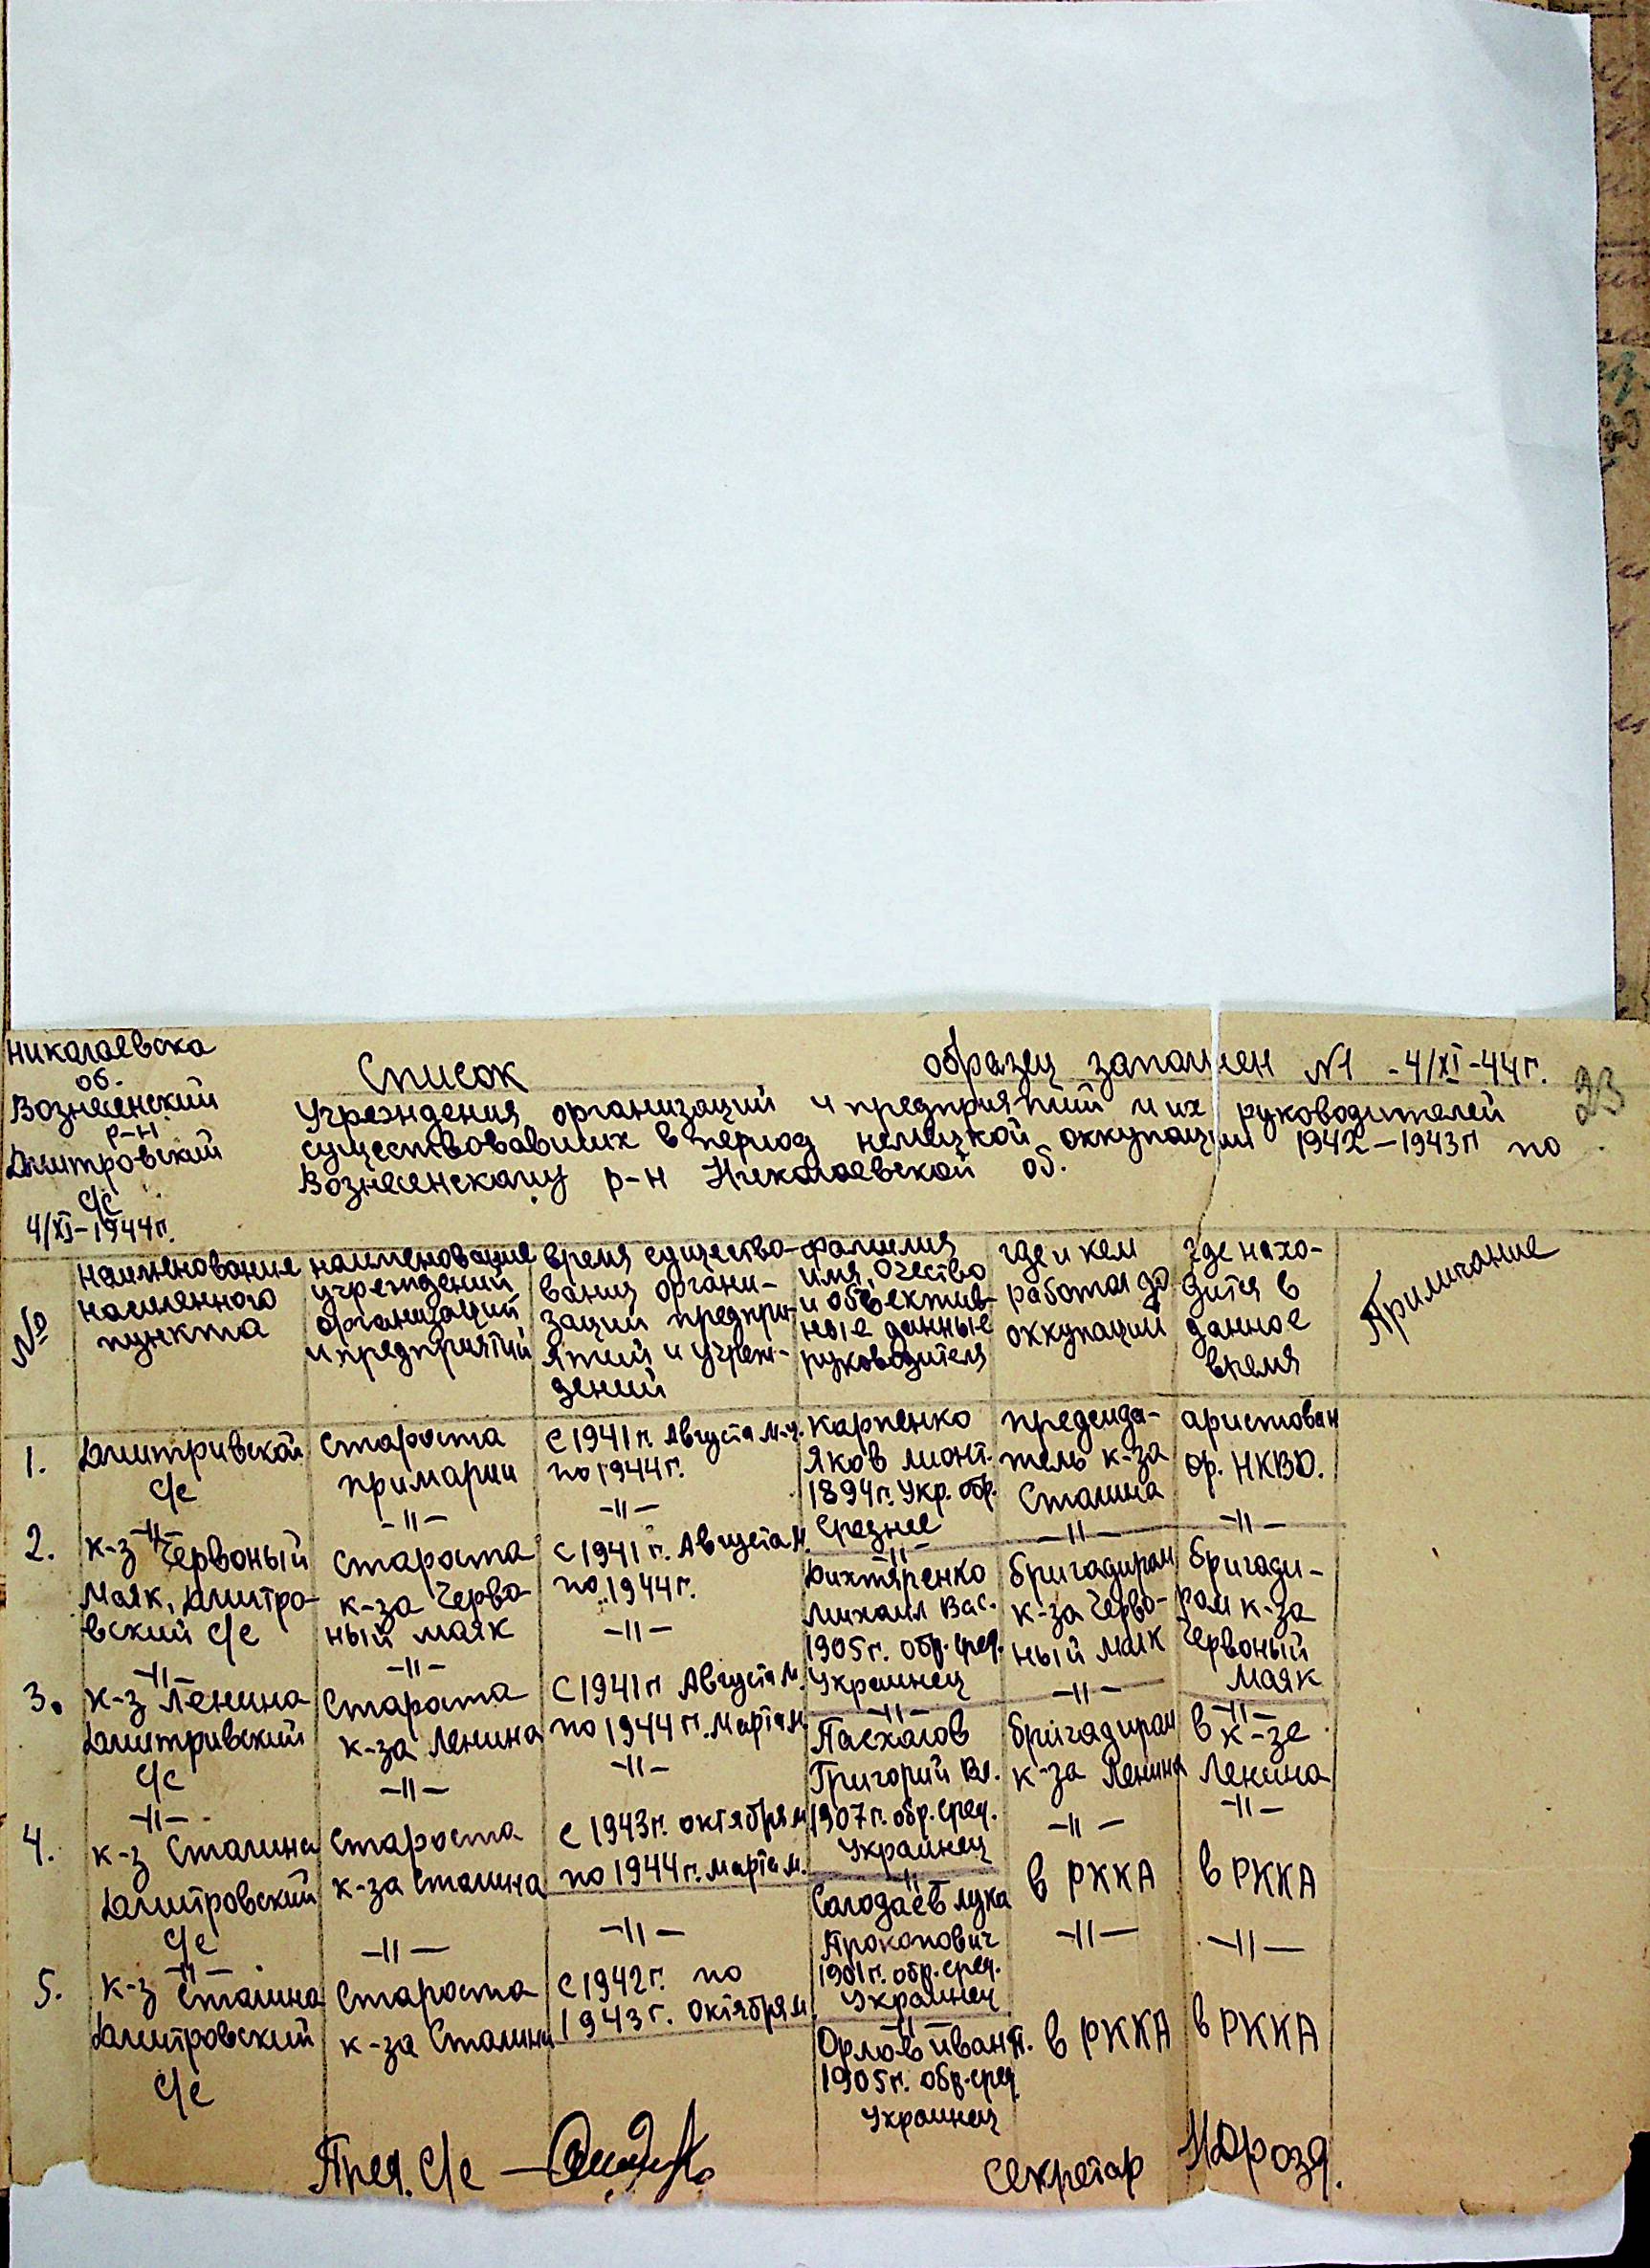 Николаевска
об.
Вознесенский
р-н
Дмитровский
с/с
4/XI-1944г.
Список
образец заполнен №1 - 4/XI-44г.
23
Учреждения организаций и предприятий и их руководителей
существовавших в период немецкой оккупации 1942-1943г по
Вознесенскому р-н Николаевской об.
№
наименование
населенного
пункта
наименование
учреждений
организаций
и предприятий
время существо-
вания органи-
заций предпри-
ятий и учреж-
дений
фамилия
имя, очество
и объектив-
ные данные
руководителя
где и кем
работал до
оккупации
где нахо-
дится в
данное
время
Примичание
1.
Дмитривской
с/с
-"-
Староста
примарии
-"-
с 1941г. Августа м-ц.
по 1944г.
-"-
Карпенко
Яков Леонт.
1894г. Укр. обр.
Среднее
-"-
председа-
тель к-за
Сталина
-"-
аристован
ор. НКВД.
-"-
2.
к-з Червоный
Маяк, Дмитро-
вский с/с
-"-
Староста
к-за Черво-
ный маяк
-"-
с 1941г. Августа м.
по 1944г.
-"-
Дихтяренко
Михаил Вас.
1905г. обр. сред.
Украинец
-"-
бригадиром
к-за Черво-
ный маяк
-"-
бригади-
ром к-за
Червоный
Маяк
-"-
3.
к-з Ленина
Дмитривский
с/с
-"-
Староста
к-за Ленина
-"-
С 1941г Августа м.
по 1944г. Марта м.
-"-
Пасхалов
Григорий Вл.
1907г. обр. сред.
Украинец
-"-
бригадиром
к-за Ленина
-"-
в к-зе
Ленина
-"-
4.
к-з Сталина
Дмитровский
с/с
-"-
Староста
к-за Сталина
-"-
с 1943г. октября м
по 1944г. марта м.
-"-
Солодаев Лука
Прокопович
1901г. обр. сред.
Украинец
-"-
в РККА
-"-
в РККА
-"-
5.
к-з Сталина
Дмитровский
с/с
Староста
к-за Сталина
с 1942г. по
1943г. октября м
Орлов Иван П.
1905г. обр. сред
Украинец
в РККА
в РККА
Пред. с/с
Секретар НДрозд.